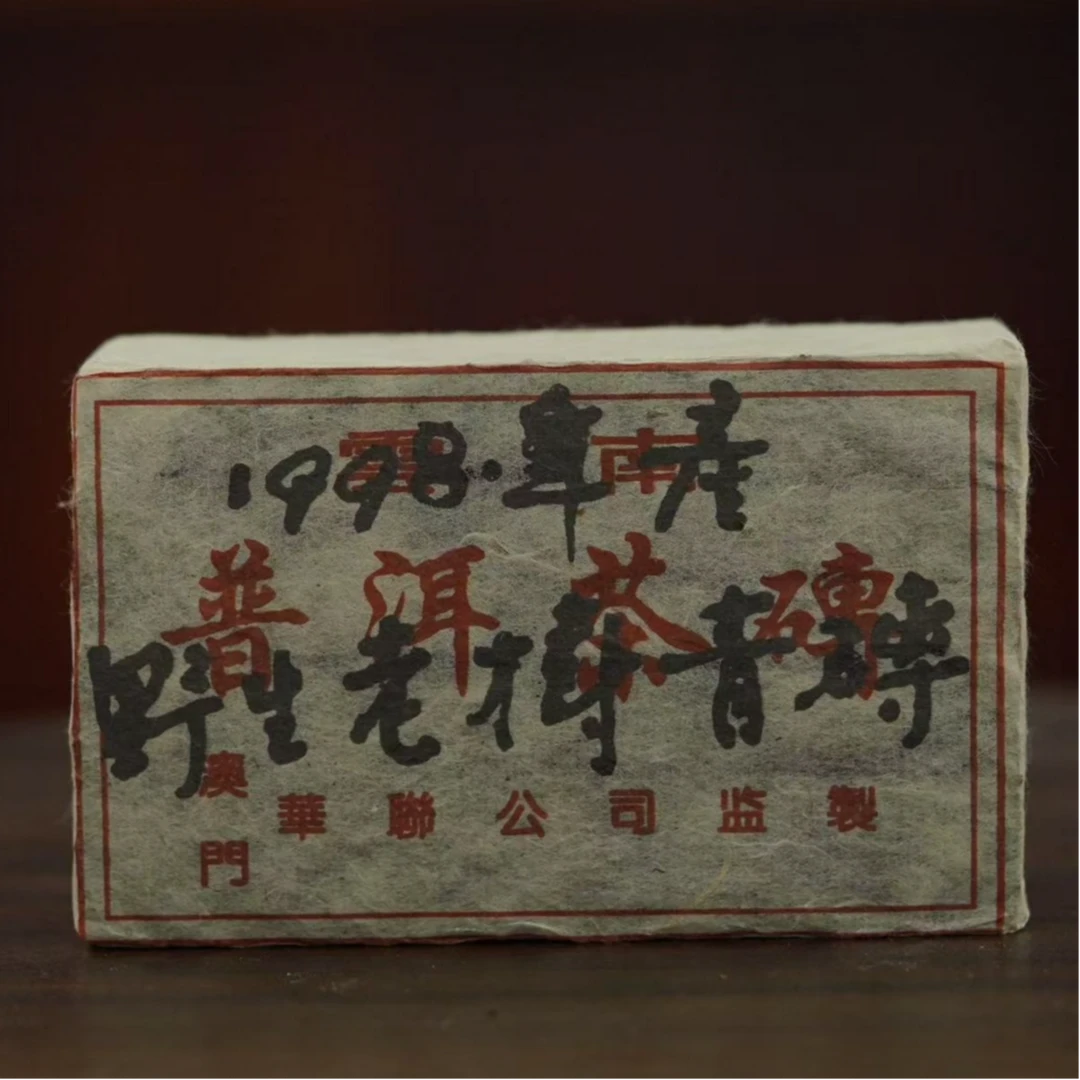 雲南
1998.年產
普洱茶磚
野生老樹青磚
澳門
華聯公司监製